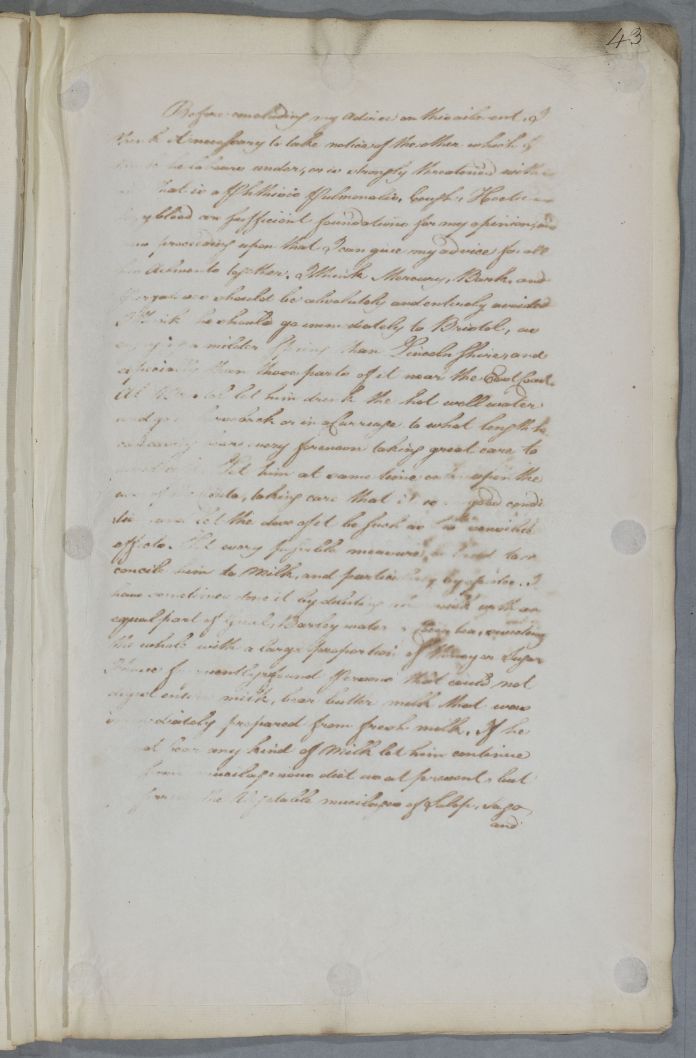 43
Before concluding my Advice on this ailment, I
think it necessary to take notice of the other which I
he labours under, or is strongly threatened with
that is a Phthisis Pulmonalis. Cough, Hectic
blood are sufficient foundations for my opinion, and
proceeding upon that I can give my advice for all
his Ailments together. I think Mercury, Bark, and
should be absolutely and entirely avoided
I think he should go immediately to Bristol, as
a milder Spring than Lincolnshire, and
especially than those parts of it near the East Coast.
At let him drink the hot well water
and horseback or in a Carriage to what length he
can every forenoon taking great care to
Let him at same time enter upon the
use of taking care that it is in good condi
tion and let the dose of it be such as
effects. Let every possible measure be tried to re
concile him to Milk, and particularly by I
have sometimes done it by diluting with an
equal part of Barley water or sweetening
the whole with a large proportion of Honey or Sugar
I have frequently found Persons that could not
digest entire milk, bear butter milk that was
immediately prepared from fresh milk. If he
bear any kind of Milk let him continue
mucilaginous diet as at present, but
from the Vegetable mucilages of Salep, Sago
and